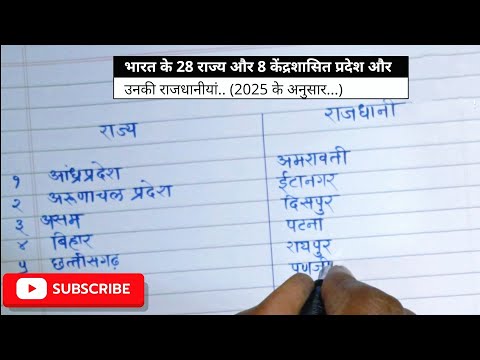 भारत के 28 राज्य और 8 केंद्रशासित प्रदेश और
उनकी राजधानीयां.. (2025 के अनुसार...)
राज्य राजधानी
१ आंध्रप्रदेश अमरावती
२ अरुणाचल प्रदेश ईटानगर
३ असम दिसपुर
४ बिहार पटना
५ छत्तीसगढ़ रायपुर
SUBSCRIBE